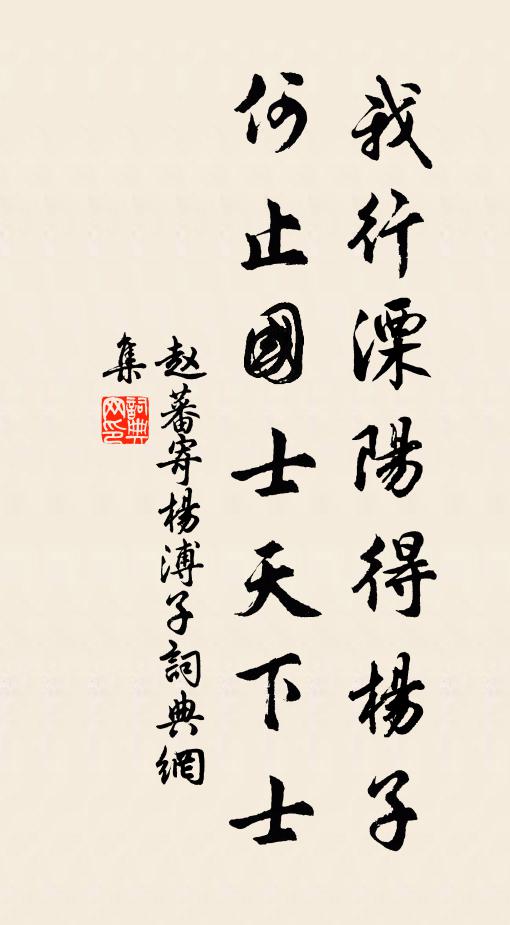 我行溧陽得楊子
何止國士天下士
赵蕃寄楊溥子詞典網
集
詞典網印